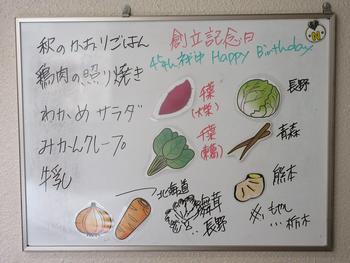 秋のかおりごはん
鶏肉の照り焼き
わかめサラダ
みかんクレープ
牛乳
創立記念日
Happy Birthday
千葉
長野
千葉
青森
北海道
舞茸
長野
熊本
もやし
栃木